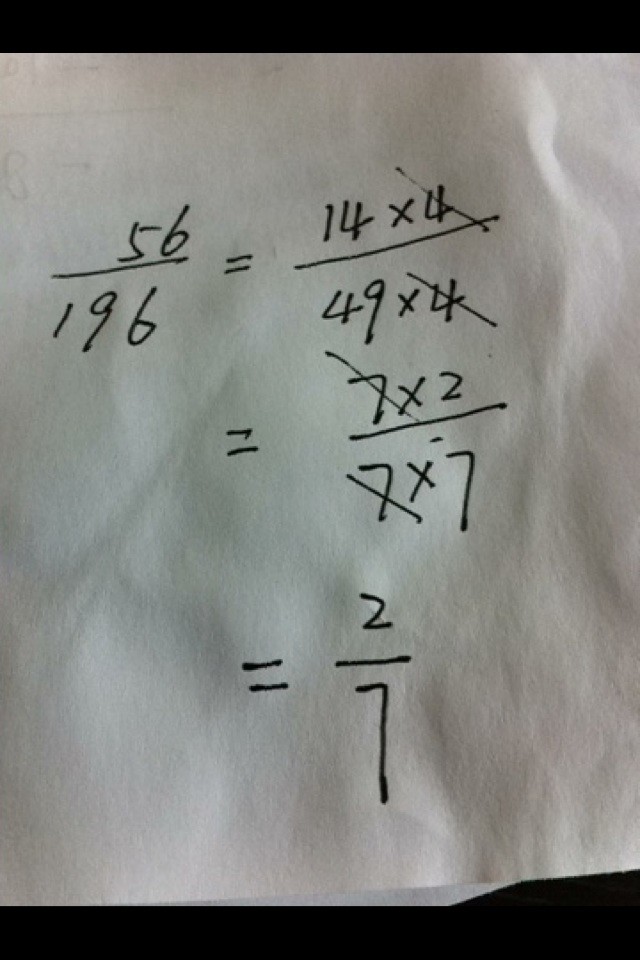 56/196 = 14×4/49×4
= 7×2/7×7
= 2/7